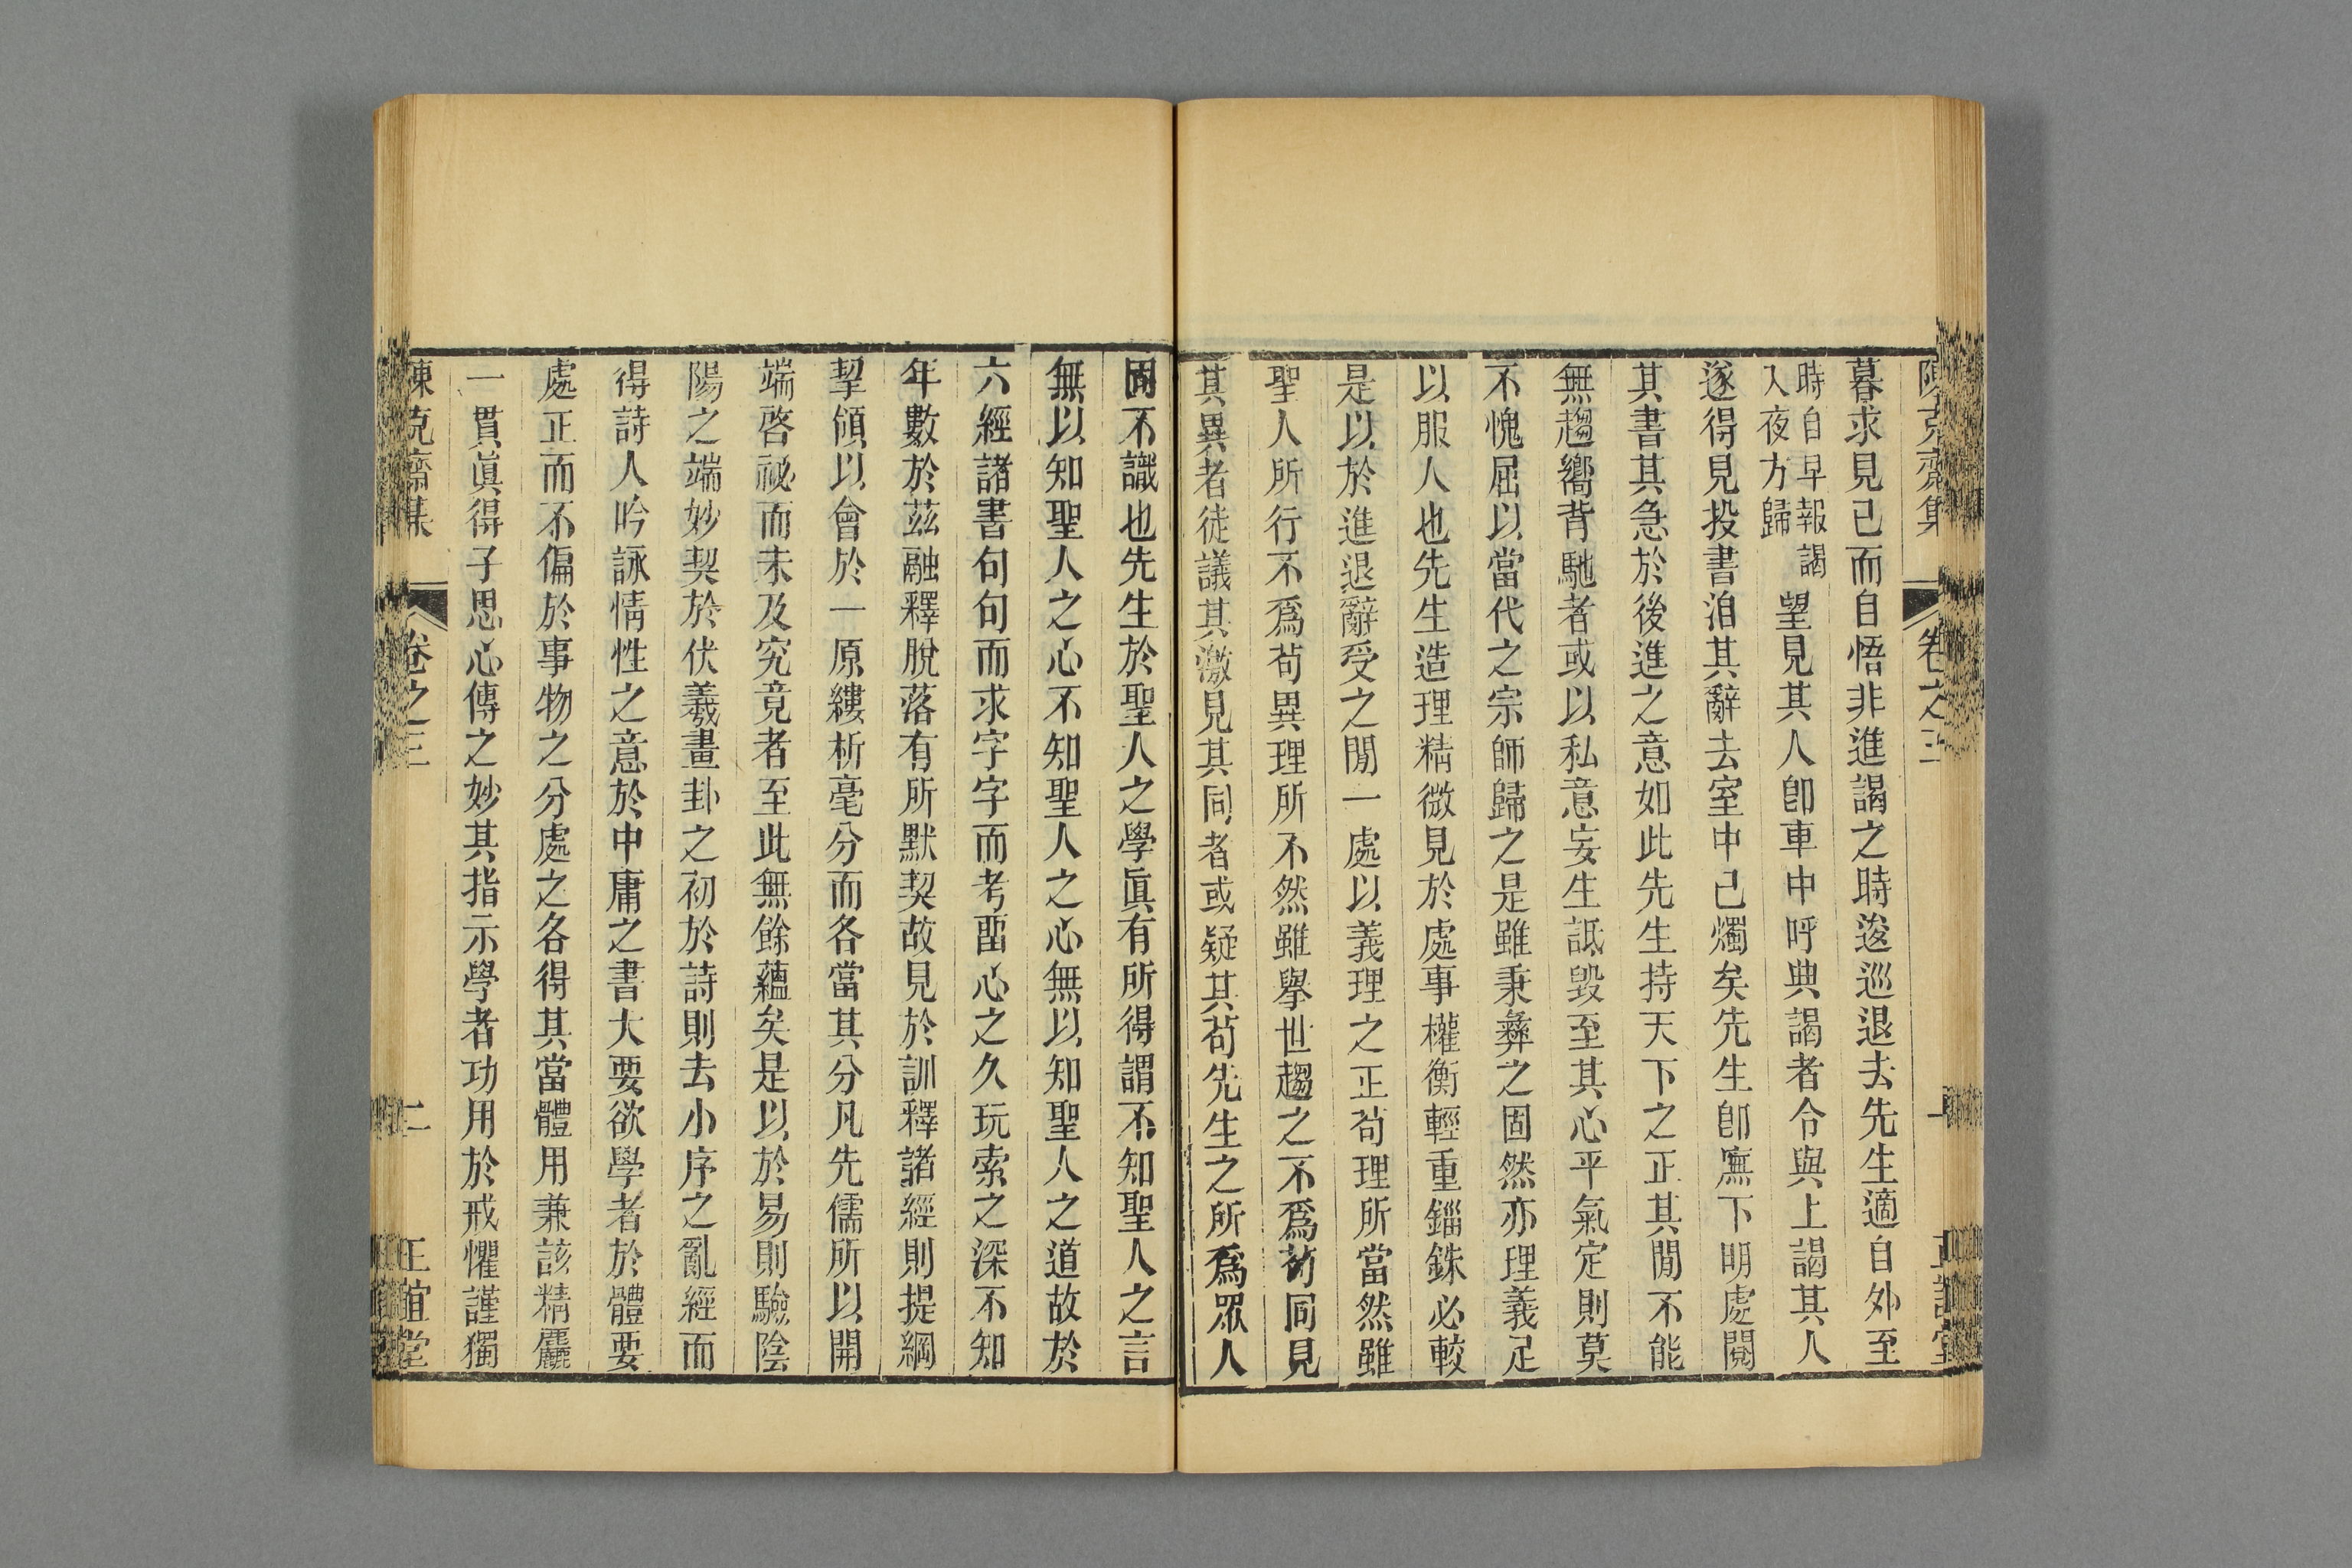 陳克齋集 卷之三 一 正誼堂
暮求見已而自悟非進謁之時逡巡退去先生適自外至
時自早報謁
入夜方歸
望見其人卽車中呼典謁者令與上謁其人
遂得見投書洎其辭去室中已燭矣先生卽廡下明處閱
其書其急於後進之意如此先生持天下之正其閒不能
無趨嚮背馳者或以私意妄生詆毀至其心平氣定則莫
不愧屈以當代之宗師歸之是雖秉彝之固然亦理義足
以服人也先生造理精微見於處事權衡輕重錙銖必較
是以於進退辭受之閒一處以義理之正苟理所當然雖
聖人所行不爲苟異理所不然雖舉世趨之不爲苟同見
其異者徒議其激見其同者或疑其苟先生之所爲眾人
固不識也先生於聖人之學眞有所得謂不知聖人之言
無以知聖人之心不知聖人之心無以知聖人之道故於
六經諸書句句而求字字而考畱心之久玩索之深不知
年數於茲融釋脫落有所默契故見於訓釋諸經則提綱
挈領以會於一原縷析毫分而各當其分凡先儒所以開
端啓祕而未及究竟者至此無餘蘊矣是以於易則驗陰
陽之端妙契於伏羲畫卦之初於詩則去小序之亂經而
得詩人吟詠情性之意於中庸之書大要欲學者於體要
處正而不偏於事物之分處之各得其當體用兼該精麤
一貫眞得子思心傳之妙其指示學者功用於戒懼謹獨
陳克齋集 卷之三 二 正誼堂